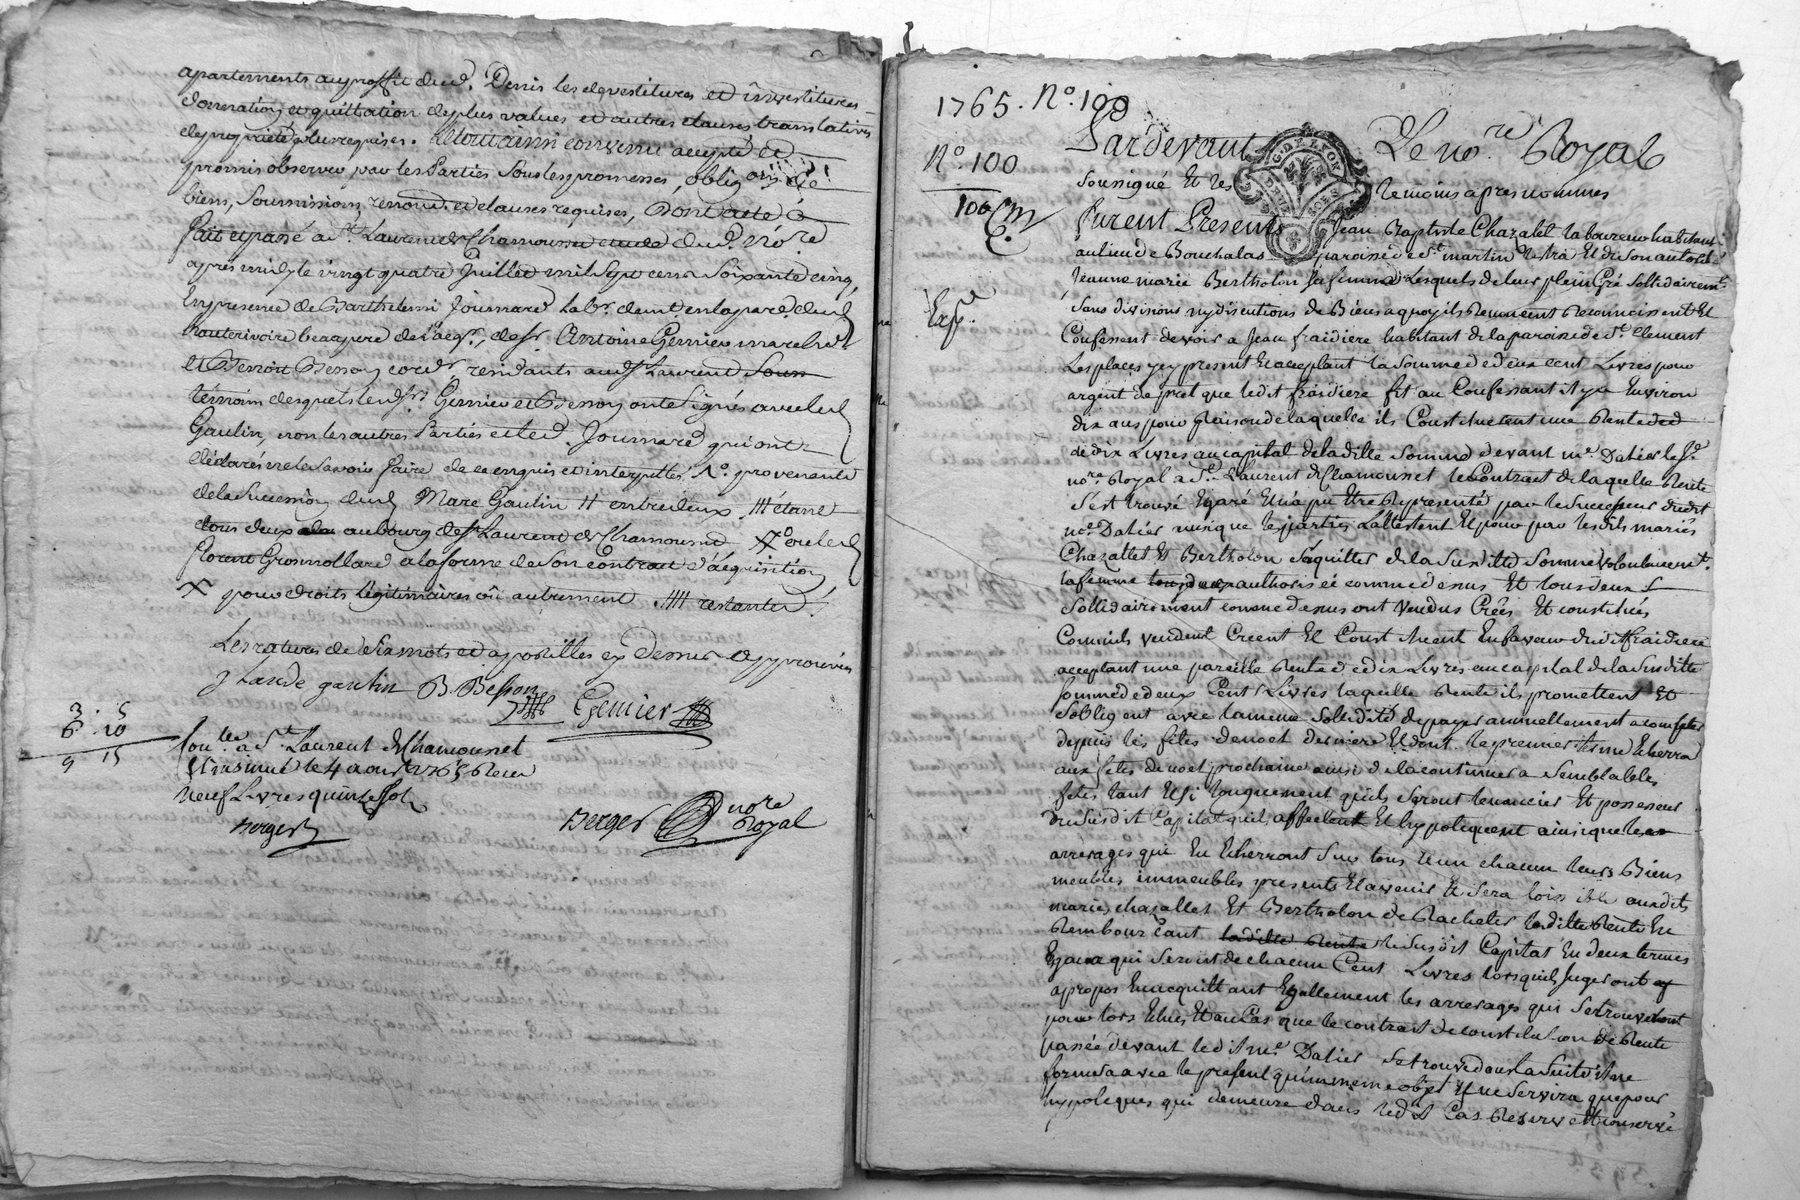 apartements au proffit dud. Denis les devestitures et investitures
donnation et quittation de plus values et autres clauses translatives
de proprieté plus requises. Le tout ainsi convenu accepté et
promis observer par les Parties sous les promesses, obligons de
biens, soumissions, renonc. et clauses requises, Dont acte
fait et passé a St. Laurent de Chamousset etude dud. nore
apres midy le vingt quatre Juillet mil sept cent soixante cinq,
En presence de Barthelemi Journard labr. demt en la par de
hauterivoire beaupere de l'acqr., de sr Antoine Gernier marchd
et Benoit Besson cordr residants aud St Laurent
témoins desquels lesd. srs Gernier et Besson ont signés avec led
Gaulin, non les autres Parties et led. Journard qui ont
déclarés ne le savoir faire de ce enquis et interpellés. No. provenants
de la succession dud Marc Gaulin # entre deux. #étant
tous deux au bourg de St Laurent de Chamousset X ou led
florent Gromollard a la forme de son contrat d'acquisition
X pour droits légitimaires où autrement .#restantes
Les ratures de six mots et apostilles cy dessus approuvées
gaulin B. Besson Gernier
3 . 5
6 . 10
9 15
Conlé. a St. Laurent de Chamousset
et insinué le 4 aout 1765 Reçu
neuf Livres quinze sols
Berger
Berger nore Royal
1765. No. 100
No. 100
100
Exp.
Pardevant Le nore. Royal
G. DE LYON
DEUX SOLS
soussigné Et les temoins apres nommes
furent Presents Jean Baptiste Chazalet laboureur habitant
au lieu de Bouchalas paroisse de St. martin Lestra Et de son autorité
Jeanne marie Bertholon sa femme Lesquels de leur plein Gré sollidairemt.
sans divisions ny discutions de Biens a quoy ils Renoncent Reconnoissent Et
Confessent devoir a Jean fraidiere habitant de la paroisse de St. Clement
Les places y cy present Et acceptant la somme de deux cent Livres pour
argent de pret que ledit fraidiere fit au Confessant il y a Environ
dix ans pour Raison de laquelle ils Constituerent une Rente
de dix Livres au capital de la ditte somme devant me. Dalier
nore. Royal a St. Laurent de Chamousset le Contract de laquelle Rente
s'est trouvé Egaré Et n'a pu Etre Representé par le successeur dudit
me. Dalier ainsi que les parties L'attestent Et pour par lesdits mariés
Chazallet Et Bertholon s'aquitter de la susditte somme volontairemt.
la femme tous deux authorisée comme dessus Et tous deux
sollidairement comme dessus ont Vendus Crées Et constitués
Comme ils vendent Creent Et Constituent En faveur dudit fraidiere
acceptant une pareille Rente de dix Livres au capital de la susditte
somme de deux Cent Livres laquelle Rente ils promettent Et
s'obligent avec la meme sollidité de payer annuellement a compter
depuis les fetes de noel derniere Et dont le premier terme Echerra
aux fetes de noel prochaine ainsi de la continuer a semblables
fetes tant Et si longuement quils seront tenancier Et possesseur
du susdit Capital quils affectent Et hypotequent ainsi que les
arrérages qui En Echerront sur tous Et un chacun leurs Biens
meubles immeubles presents Et avenir Et sera loisible auxdits
mariés chazallet Et Bertholon de Racheter laditte Rente En
Rembourçant laditte Rente le susdit Capital En deux termes
Egaux qui seront de chacun Cent Livres lorsquils Jugeront
apropos En acquittant Egallement les arrerages qui se trouveront
pour lors Echus Et au Cas que le contract de constitution de Rente
passée devant ledit me. Dalier se trouve dans la suite il ne
formera avec le present qu'un meme objet Et ne servira que pour
hypoteques qui demeure dans ledit Cas Reservé Et conservé